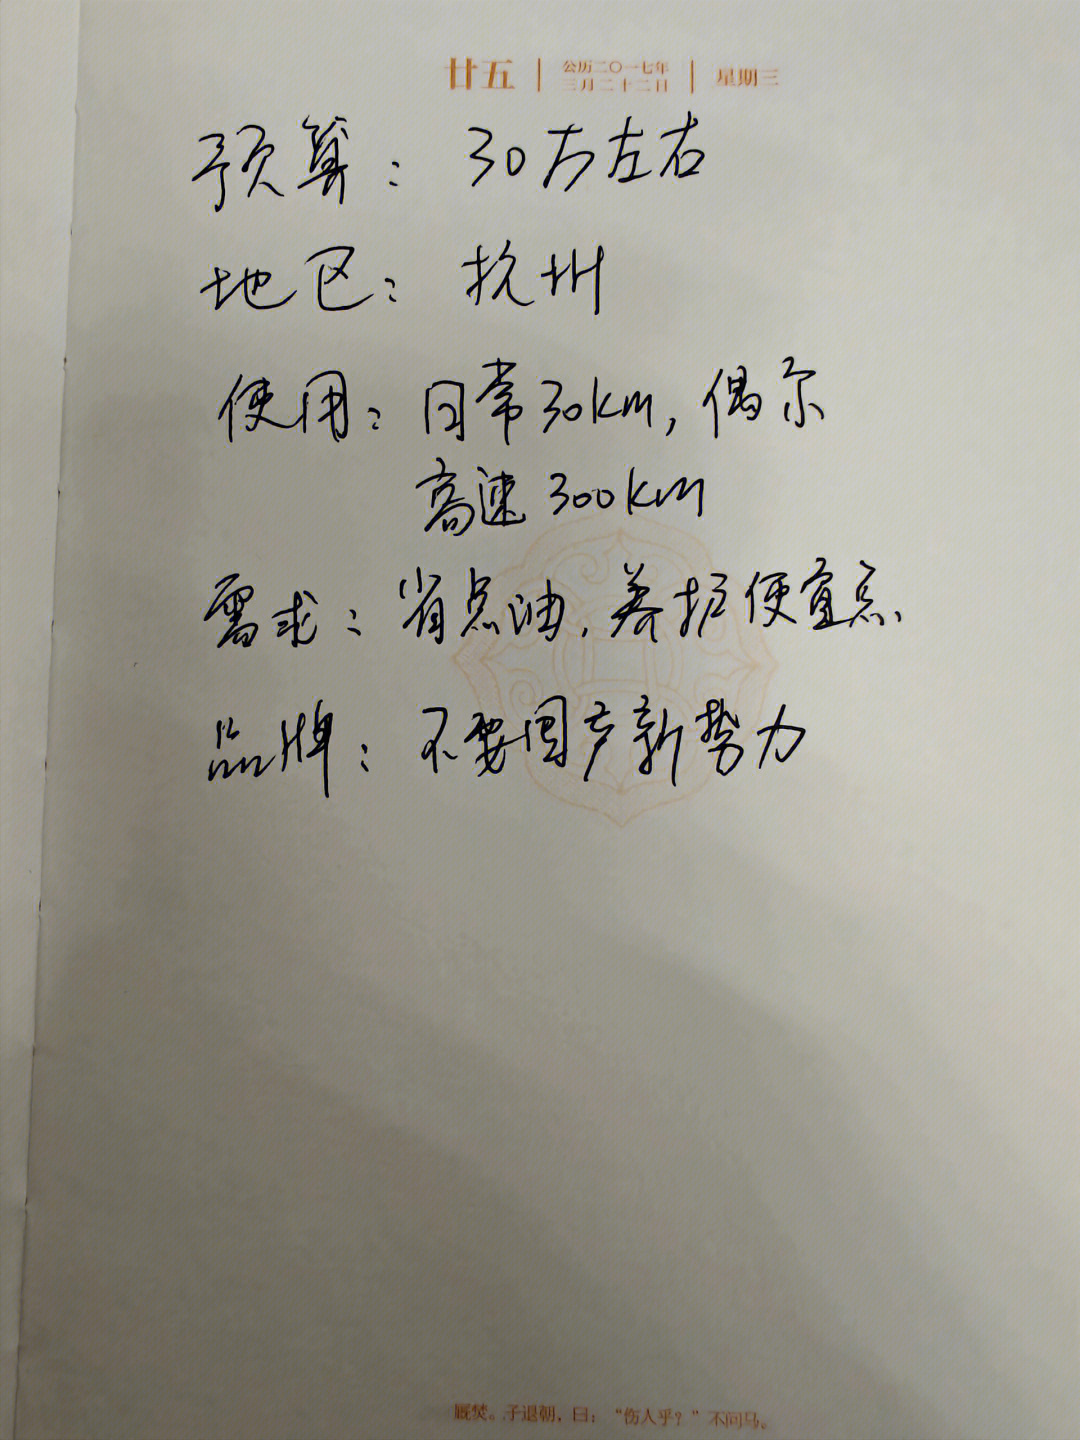 廿五 | 公历二〇一七年三月二十二日 | 星期三
预算：30万左右
地区：杭州
使用：日常30km，偶尔
高速300km
需求：省点油，养护便宜点
品牌：不要国产新势力
厩焚。子退朝，曰：“伤人乎？”不问马。